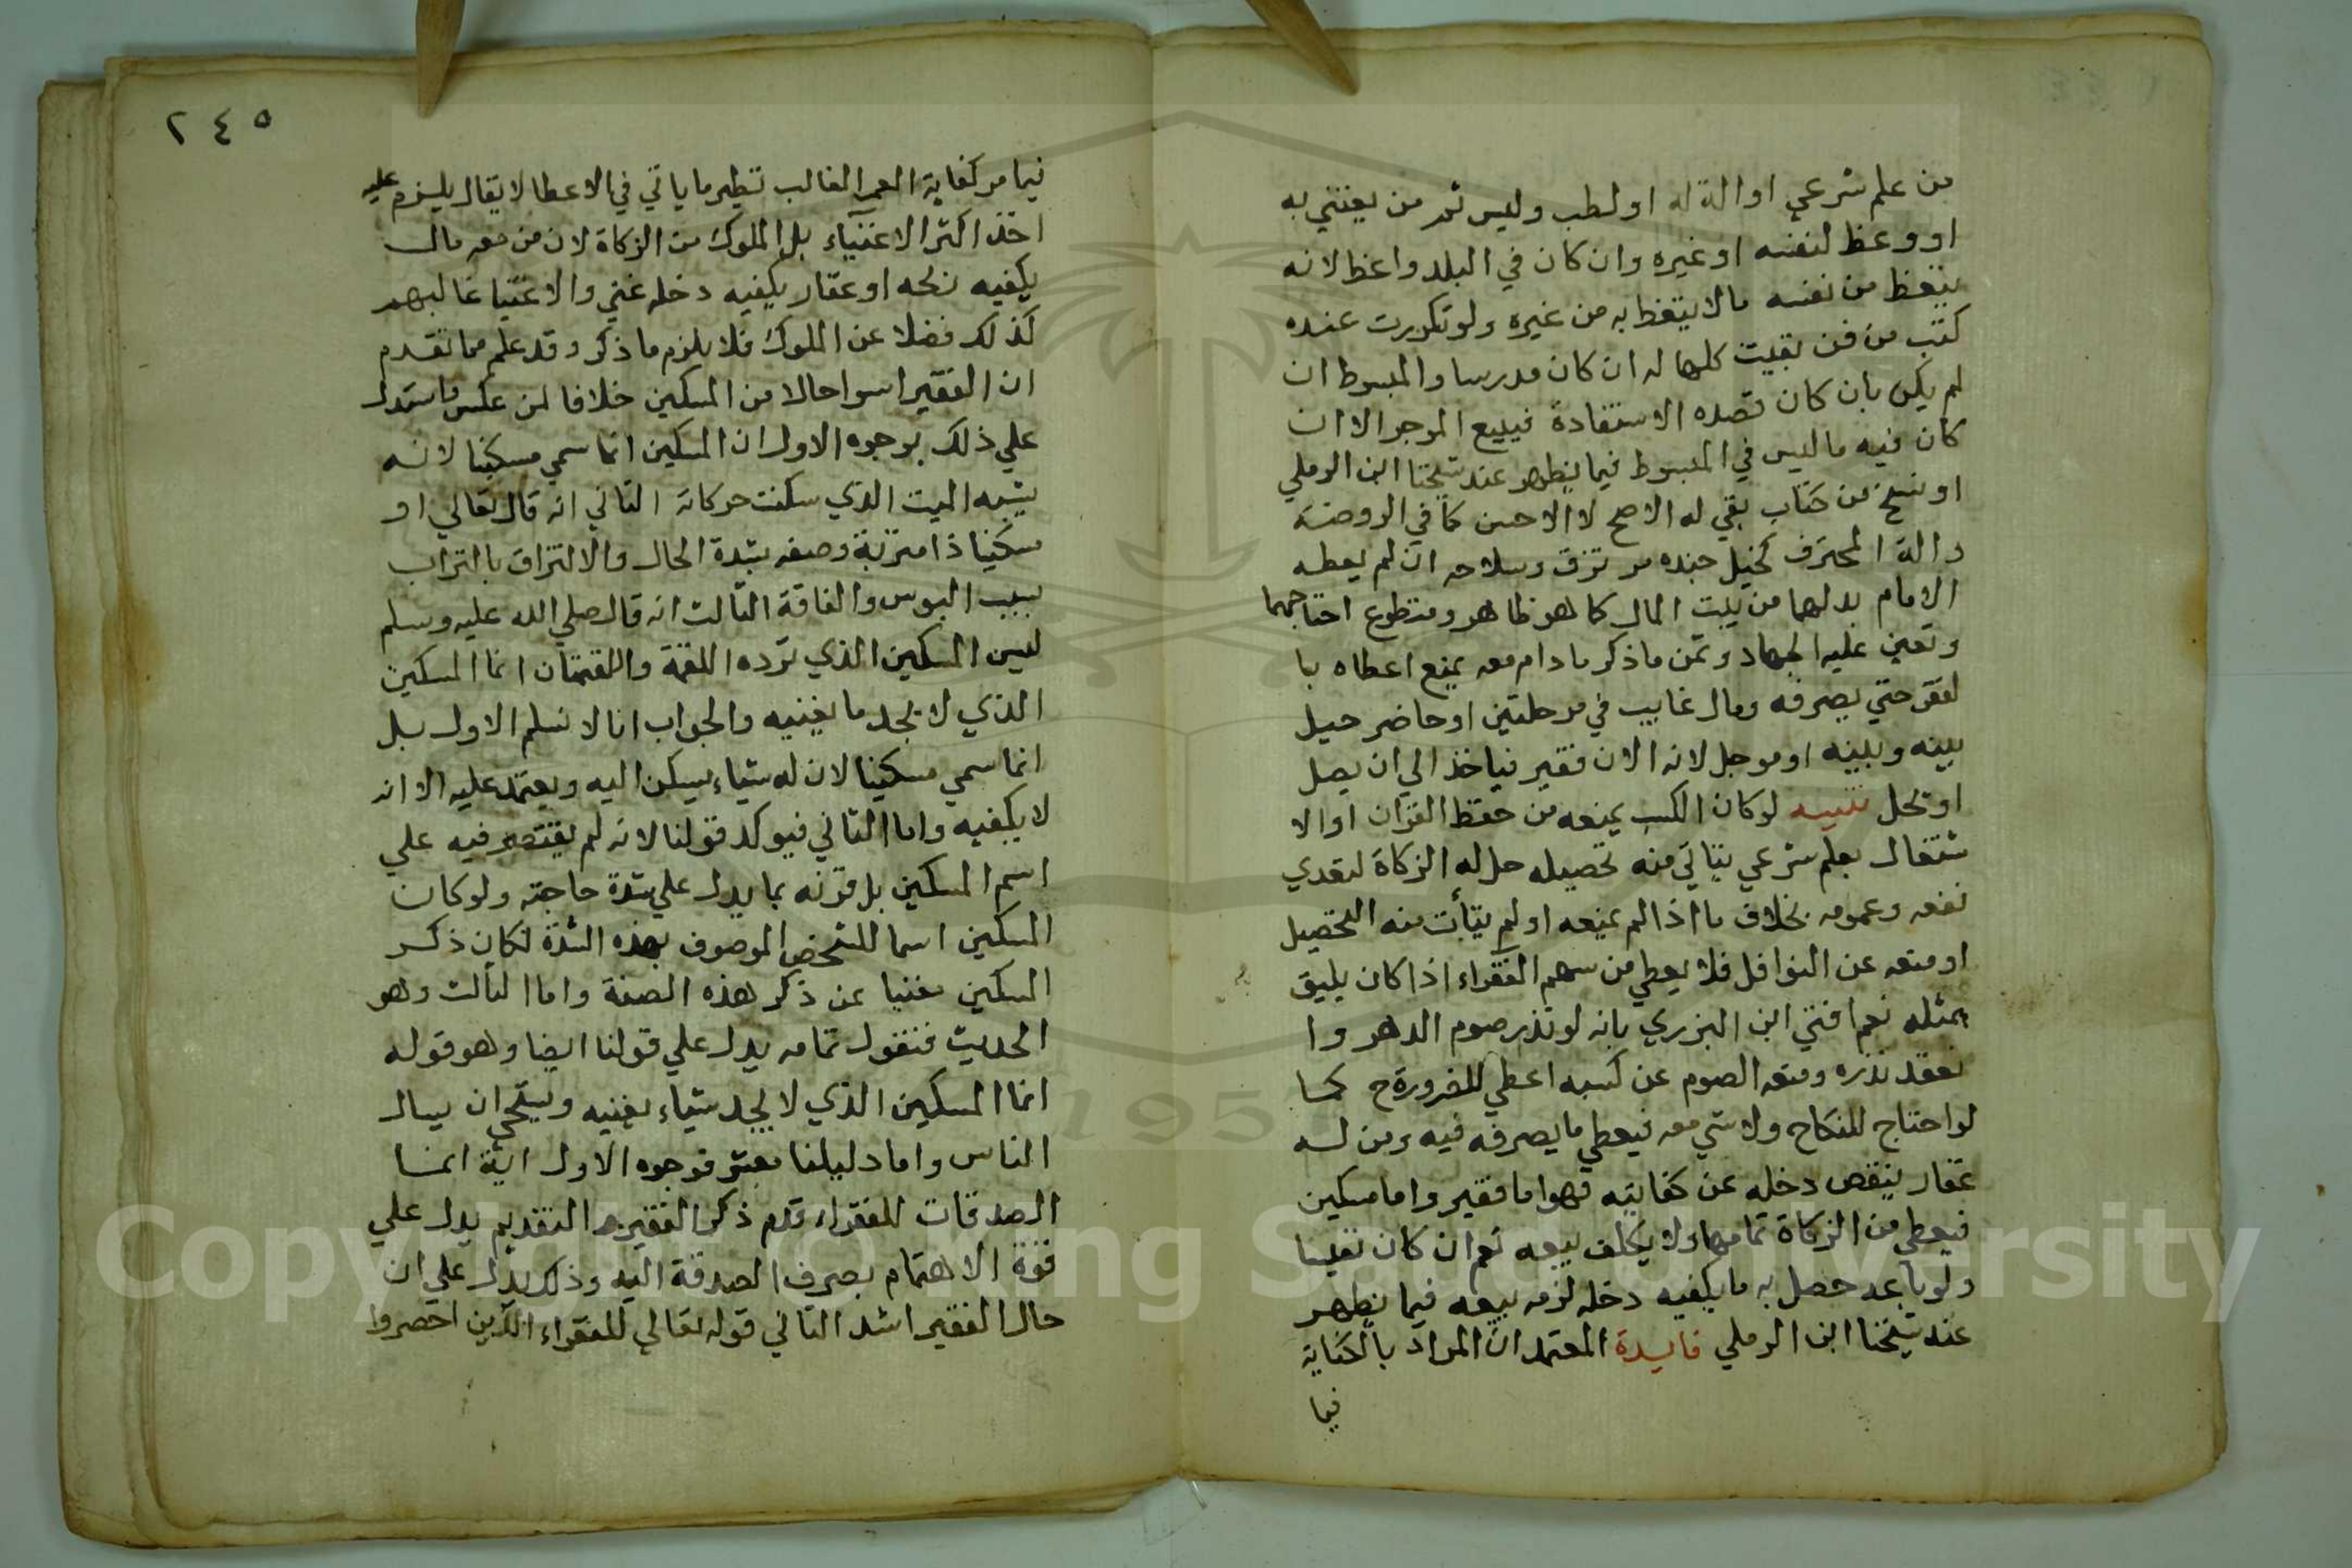 من علم شرعي او الة له او لطب وليس ثم من يعتني به
او وعظ لنفسه او غيره وان كان في البلد واعظ لانه
يتعظ من نفسه مالا يتعظ به من غيره ولو تكررت عنده
كتب من فن بقيت كلها له ان كان مدرسا والمبسوط ان
لم يكن بان كان قصده الاستفادة فيبيع الموجز الا ان
كان فيه ما ليس في المبسوط فيما يظهر عند شيخنا ابن الرملي
او نسخ من كتاب بقي له الاصح لا الاحسن كما في الروضة
والة المحترف كخيل جنده مرتزق وسلاحه ان لم يعطه
الامام بدلهما من بيت المال كما هو ظاهر ومتطوع احتاجهما
وتعين عليه الجهاد وثمن ما ذكر ما دام معه يمنع اعطاه با
لفقر حتي يصرفه ومال غايب في مرحلتين او حاضر حيل
بينه وبينه او موجل لانه الان فقير فياخذ الي ان يصل
او يحل تنبيه لو كان الكسب يمنعه من حفظ القران او الا
شتغال بعلم شرعي يتاتي منه تحصيله حل له الزكاة لتعدي
نفعه وعمومه بخلاف ما اذا لم يمنعه او لم يتأت منه التحصيل
او منعه عن النوافل فلا يعطي من سهم الفقراء اذا كان يليق
بمثله نعم افتي ابن البزري بانه لو نذر صوم الدهر وا
نعقد نذره ومنعه الصوم عن كسبه اعطي للضرورة ح كما
لو احتاج للنكاح ولا شي معه فيعطي ما يصرفه فيه ومن له
عقار ينقص دخله عن كفايته فهو اما فقير واما مسكين
فيعطي من الزكاة تمامها ولا يكلف بيعه نعم ان كان نفيسا
ولو باعه حصل به ما يكفيه دخله لزمه بيعه فيما يظهر
عند شيخنا ابن الرملي فايدة المعتمد ان المراد بالكفاية
فيما
٢٤٥
فيما مر كفاية العمر الغالب نظير ما ياتي في الاعطا لا يقال يلزم عليه
اخذ اكثر الاغنياء بل الملوك من الزكاة لان من معه مال
يكفيه ربحه او عقار يكفيه دخله غني والاغنيا غالبهم
كذلك فضلا عن الملوك فلا يلزم ما ذكر وقد علم مما تقدم
ان الفقير اسوا حالا من المسكين خلافا لمن عكس واستدل
علي ذلك بوجوه الاول ان المسكين انما سمي مسكينا لانه
يشبه الميت الذي سكنت حركاته الثاني انه قال تعالي او
مسكينا ذا متربة وصفه بشدة الحال والالتزاق بالتراب
بسبب البوس والفاقة الثالث انه قال صلي الله عليه وسلم
ليس المسكين الذي ترده اللقمة واللقمتان انما المسكين
الذي لا يجد ما يغنيه والجواب انا لا نسلم الاول بل
انما سمي مسكينا لان له شياء يسكن اليه ويعتمد عليه الا انه
لا يكفيه واما الثاني فيوكد قولنا لانه لم يقتصر فيه علي
اسم المسكين بل قرنه بما يدل علي شدة حاجته ولو كان
المسكين اسما للشخص الموصوف بهذه الشدة لكان ذكر
المسكين مغنيا عن ذكر هذه الصفة واما الثالث وهو
الحديث فنقول تمامه يدل علي قولنا ايضا وهو قوله
انما المسكين الذي لا يجد شياء يغنيه ويستحي ان يسال
الناس واما دليلنا فوجوه الاول اية انما
الصدقات للفقراء قدم ذكر الفقير التقديم يدل علي
قوة الاهتمام بصرف الصدقة اليه وذلك يدل علي ان
حال الفقير اشد الثاني قوله تعالي للفقراء الذين احصروا
Copyright © King Saud University
195